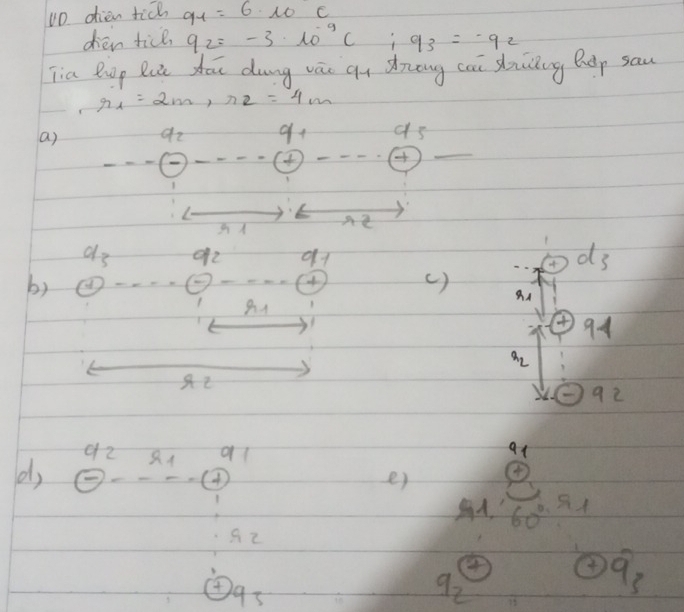 VD điện tích q1 = 6 · 10 C
điện tích q2 = -3 · 10⁻⁹ C ; q3 = -q2
hợp lực tác dụng vào q1 trong các trường hợp sau
r1 = 2m, r2 = 4m
a) q2 q1 q3
r1 r2
b) q3 q2 q1
r1
r2
c) q3
r1
q1
r2
q2
d) q2 r1 q1
r2
q3
e) q1
r1 60° r1
q2 q3